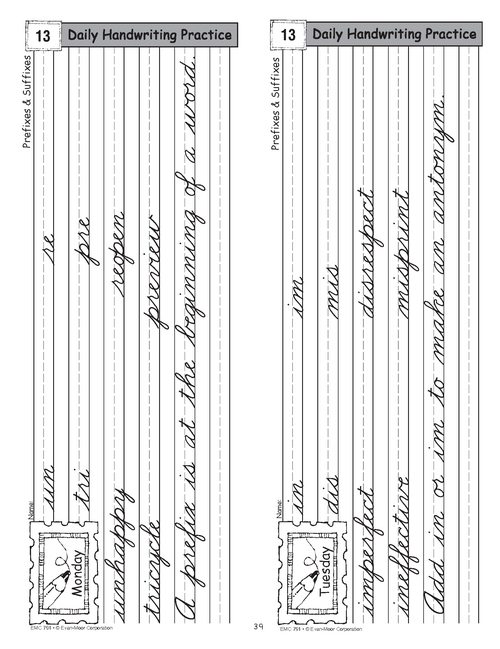 13 Daily Handwriting Practice
Prefixes & Suffixes
Name:
Monday
un re
tri pre
unhappy reopen
tricycle preview
A prefix is at the beginning of a word.
EMC 791 • © Evan-Moor Corporation
39
13 Daily Handwriting Practice
Prefixes & Suffixes
Name:
Tuesday
in im
dis mis
imperfect disrespect
ineffective misprint
Add in or im to make an antonym.
EMC 791 • © Evan-Moor Corporation